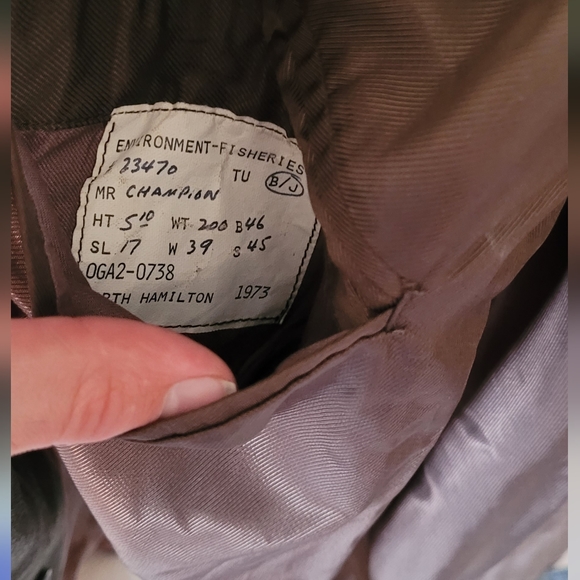 ENVIRONMENT-FISHERIES
23470 TU B/J
MR CHAMPION
HT 5 10 WT 200 B 46
SL 17 W 39 S 45
OGA2-0738
RTH HAMILTON 1973